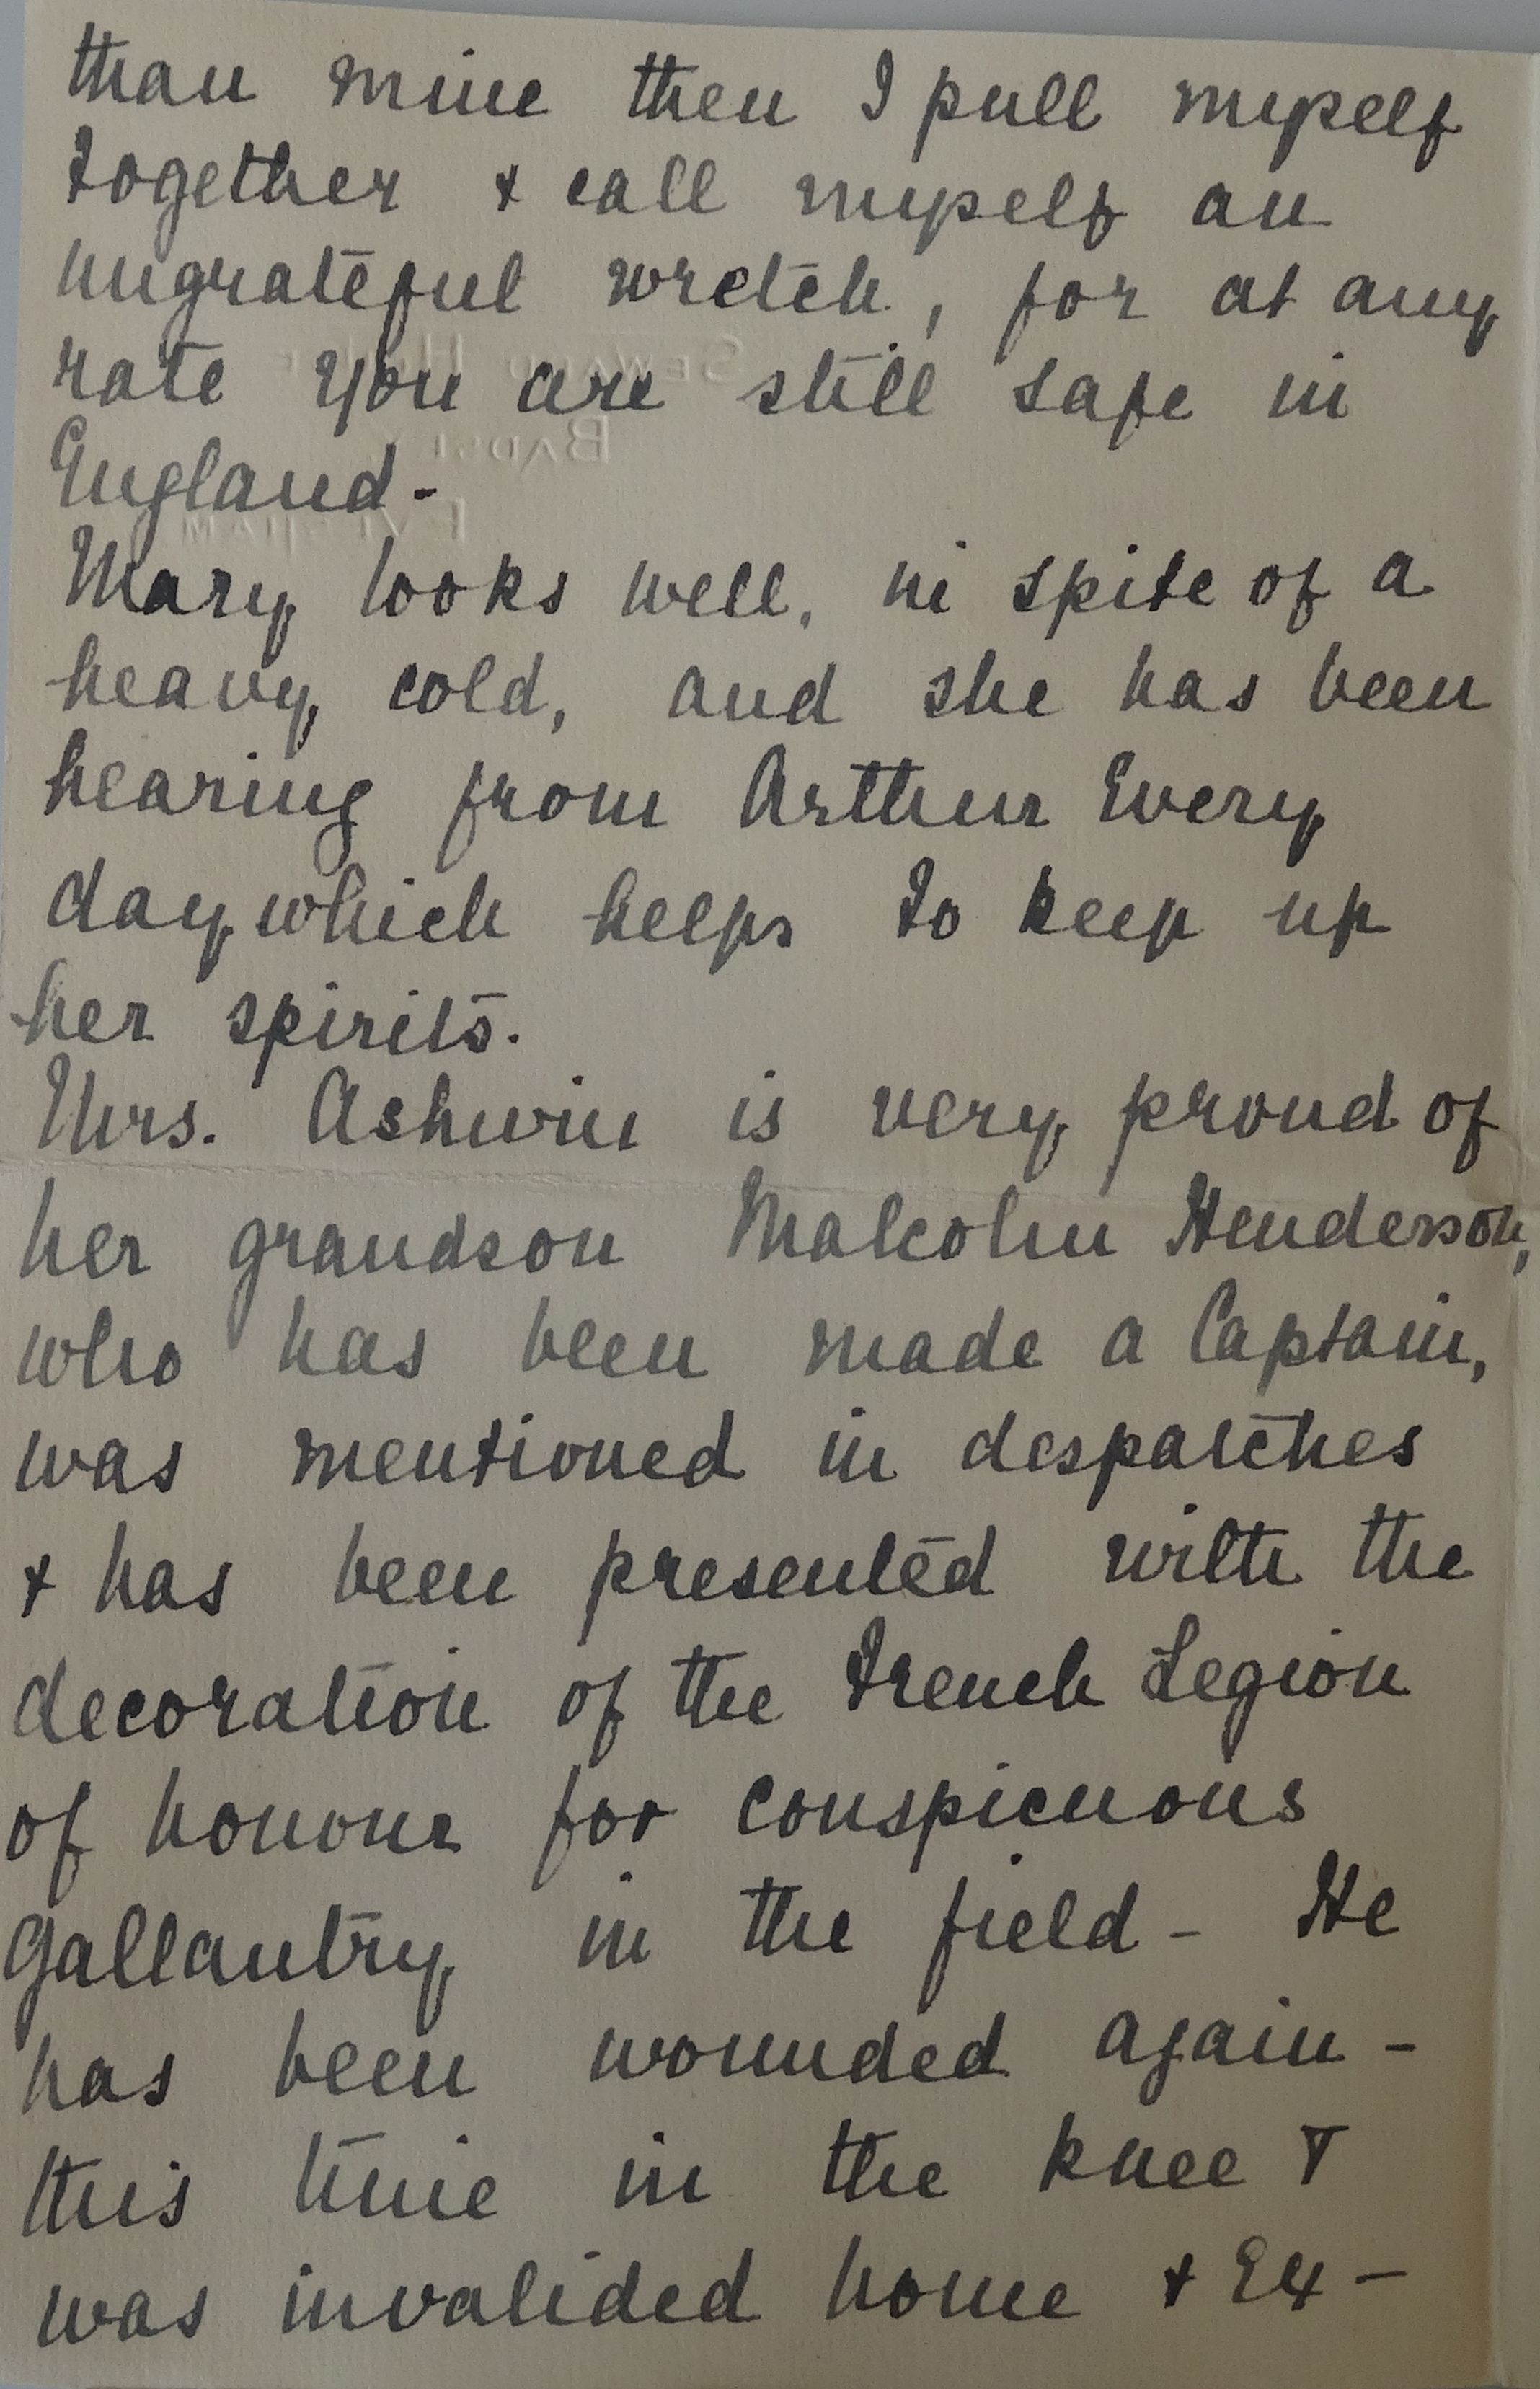 than mine then I pull myself
together & call myself an
ungrateful wretch, for at any
rate you are still safe in
England -
Mary looks well, in spite of a
heavy cold, and she has been
hearing from Arthur Every
day which helps to keep up
her spirits.
Mrs. Ashwin is very proud of
her grandson Malcolm Henderson,
who has been made a Captain,
was mentioned in despatches
& has been presented with the
decoration of the French Legion
of honour for conspicuous
gallantry in the field - He
has been wounded again -
this time in the knee &
was invalided home & Ex -